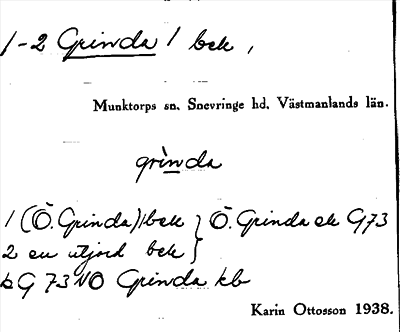 1-2 Grinda 1 bek,
Munktorps sn. Snevringe hd. Västmanlands län.
grìnda
1 (Ö. Grinda) 1 bek } Ö. Grinda ek G73
2 en utjord bek }
G 73 NO Grinda kb
Karin Ottosson 1938.